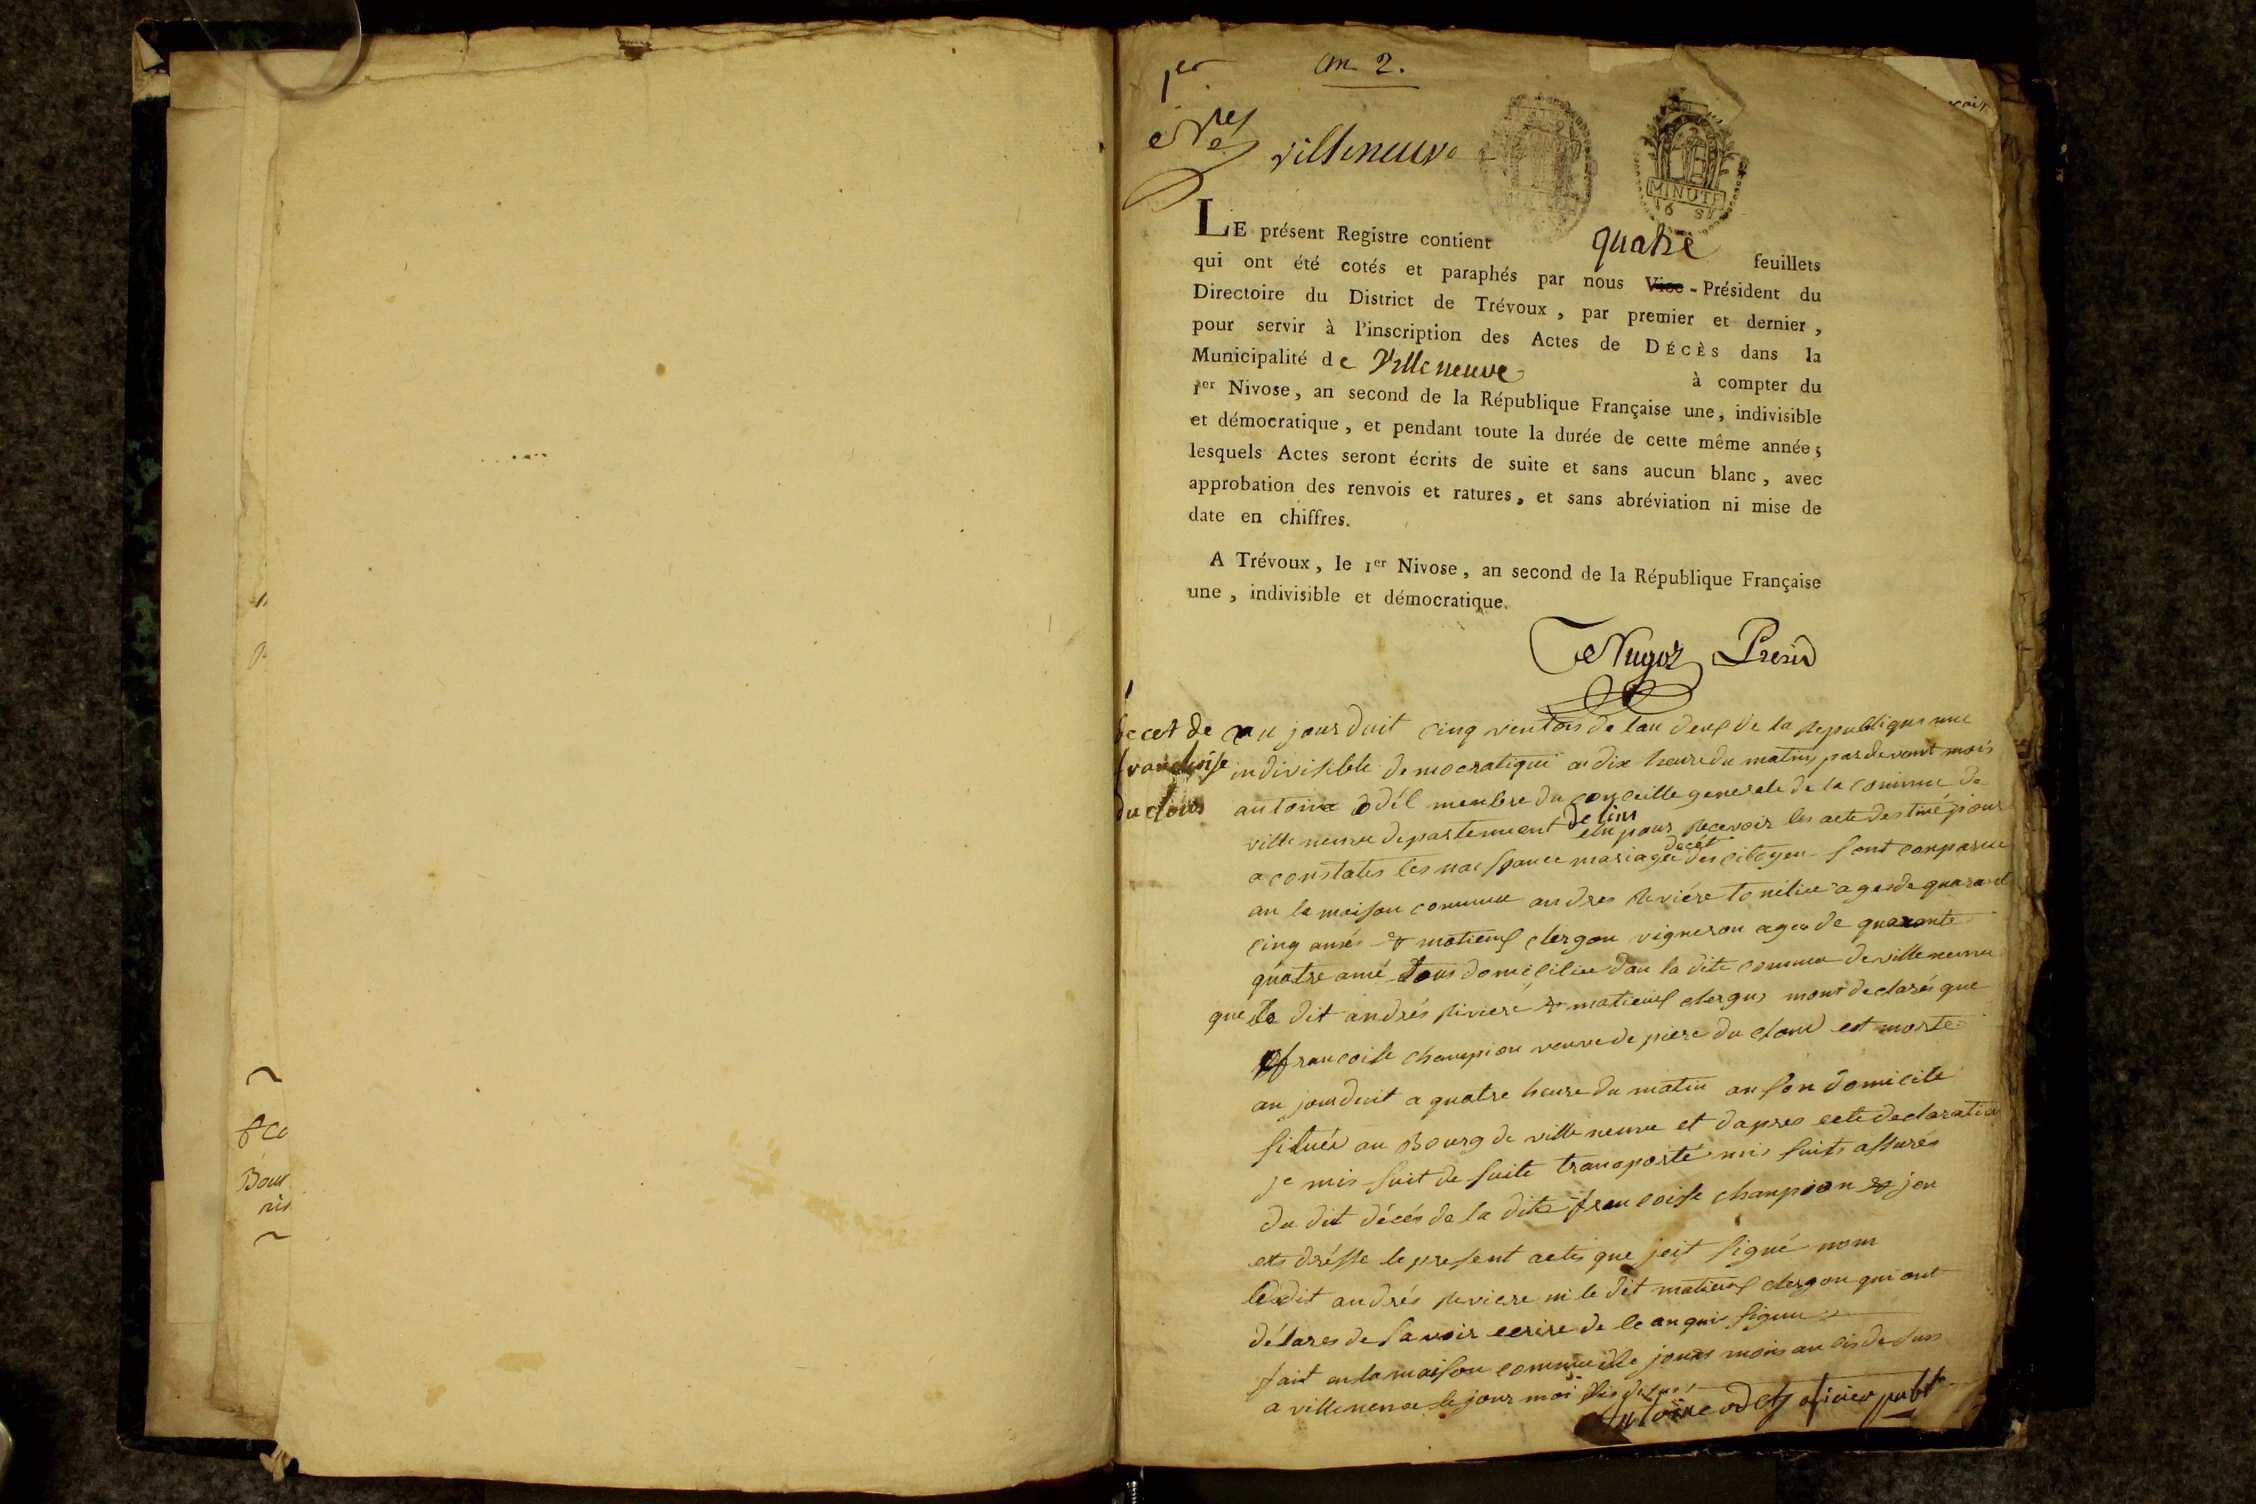 1er
an 2.
villeneuve
MINUTE
LE présent Registre contient quatre feuillets
qui ont été cotés et paraphés par nous Vice-Président du
Directoire du District de Trévoux, par premier et dernier,
pour servir à l'inscription des Actes de DÉCÈS dans la
Municipalité de Villeneuve à compter du
1er Nivose, an second de la République Française une, indivisible
et démocratique, et pendant toute la durée de cette même année;
lesquels Actes seront écrits de suite et sans aucun blanc, avec
approbation des renvois et ratures, et sans abréviation ni mise de
date en chiffres.
A Trévoux, le 1er Nivose, an second de la République Française
une, indivisible et démocratique.
Presid
decet de
francoise
du clous
au jourduit cinq ventos de lan deux de la republique une
indivisible democratique a dix heure du matin pardevant mois
antoine odèt membre du conceille generale de la comune de
ville neuve departement de lins elu pour recevoir les acte destiné pour
a constates les naissance mariage decét des citoyen sont conparue
an la maison comune andres riviére tonélier ages de quarant
cinq anés & matieux clergon vigneron ages de quarante
quatre ané tous domicilies dan la dite comune de ville neuve
que le dit andrés riviere & matieux clergus mont declarés que
francoise champion veuve de piere du clous est morte
au jourduit a quatre heure du matin an són domicile
situés au Bourg de ville neuve et dapres cete declaration
je mis suit de suite transporté mis suits assurés
du dit décés de la dite francoise champion & jen
ets drésse le present actes que jeit signé nom
ledit andrés riviere ni le dit matieux clergon qui ont
délares de savoir ecrire de ce anquis signe
fait en la maison comune les jours mois an cis desus
a villeneuve le jour moi cis desus
Antoine odet oficier publ